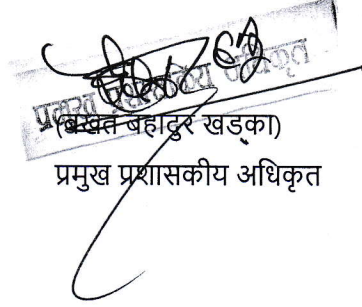 प्रमुख प्रशासकीय अधिकृत
(बखत बहादुर खड्का)
प्रमुख प्रशासकीय अधिकृत